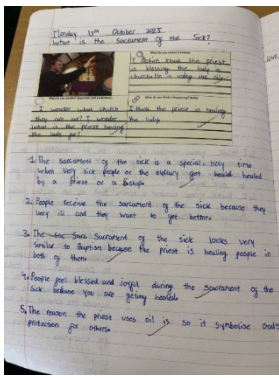 Monday 11th October 2023
What is the Sacrament of the Sick?
I notice that the priest
is blessing the lady in
church
I wonder what church
they are at? I wonder
what is the priest
the lady for?
I think the priest is healing
the lady.
1. The sacrament of the sick is a special, holy time
when very sick people or the elderly get healed
by a priest or a bishop.
2. People receive the sacrament of the sick because they
very ill and they want to get better.
3. The Sacrament of the sick looks very
similar to Baptism because the priest is healing people in
both of them.
4. People feel blessed and joyful during the sacrament of the
sick because you are getting healed.
5. The reason the priest uses oil is so it symbolise God's
protection for others.